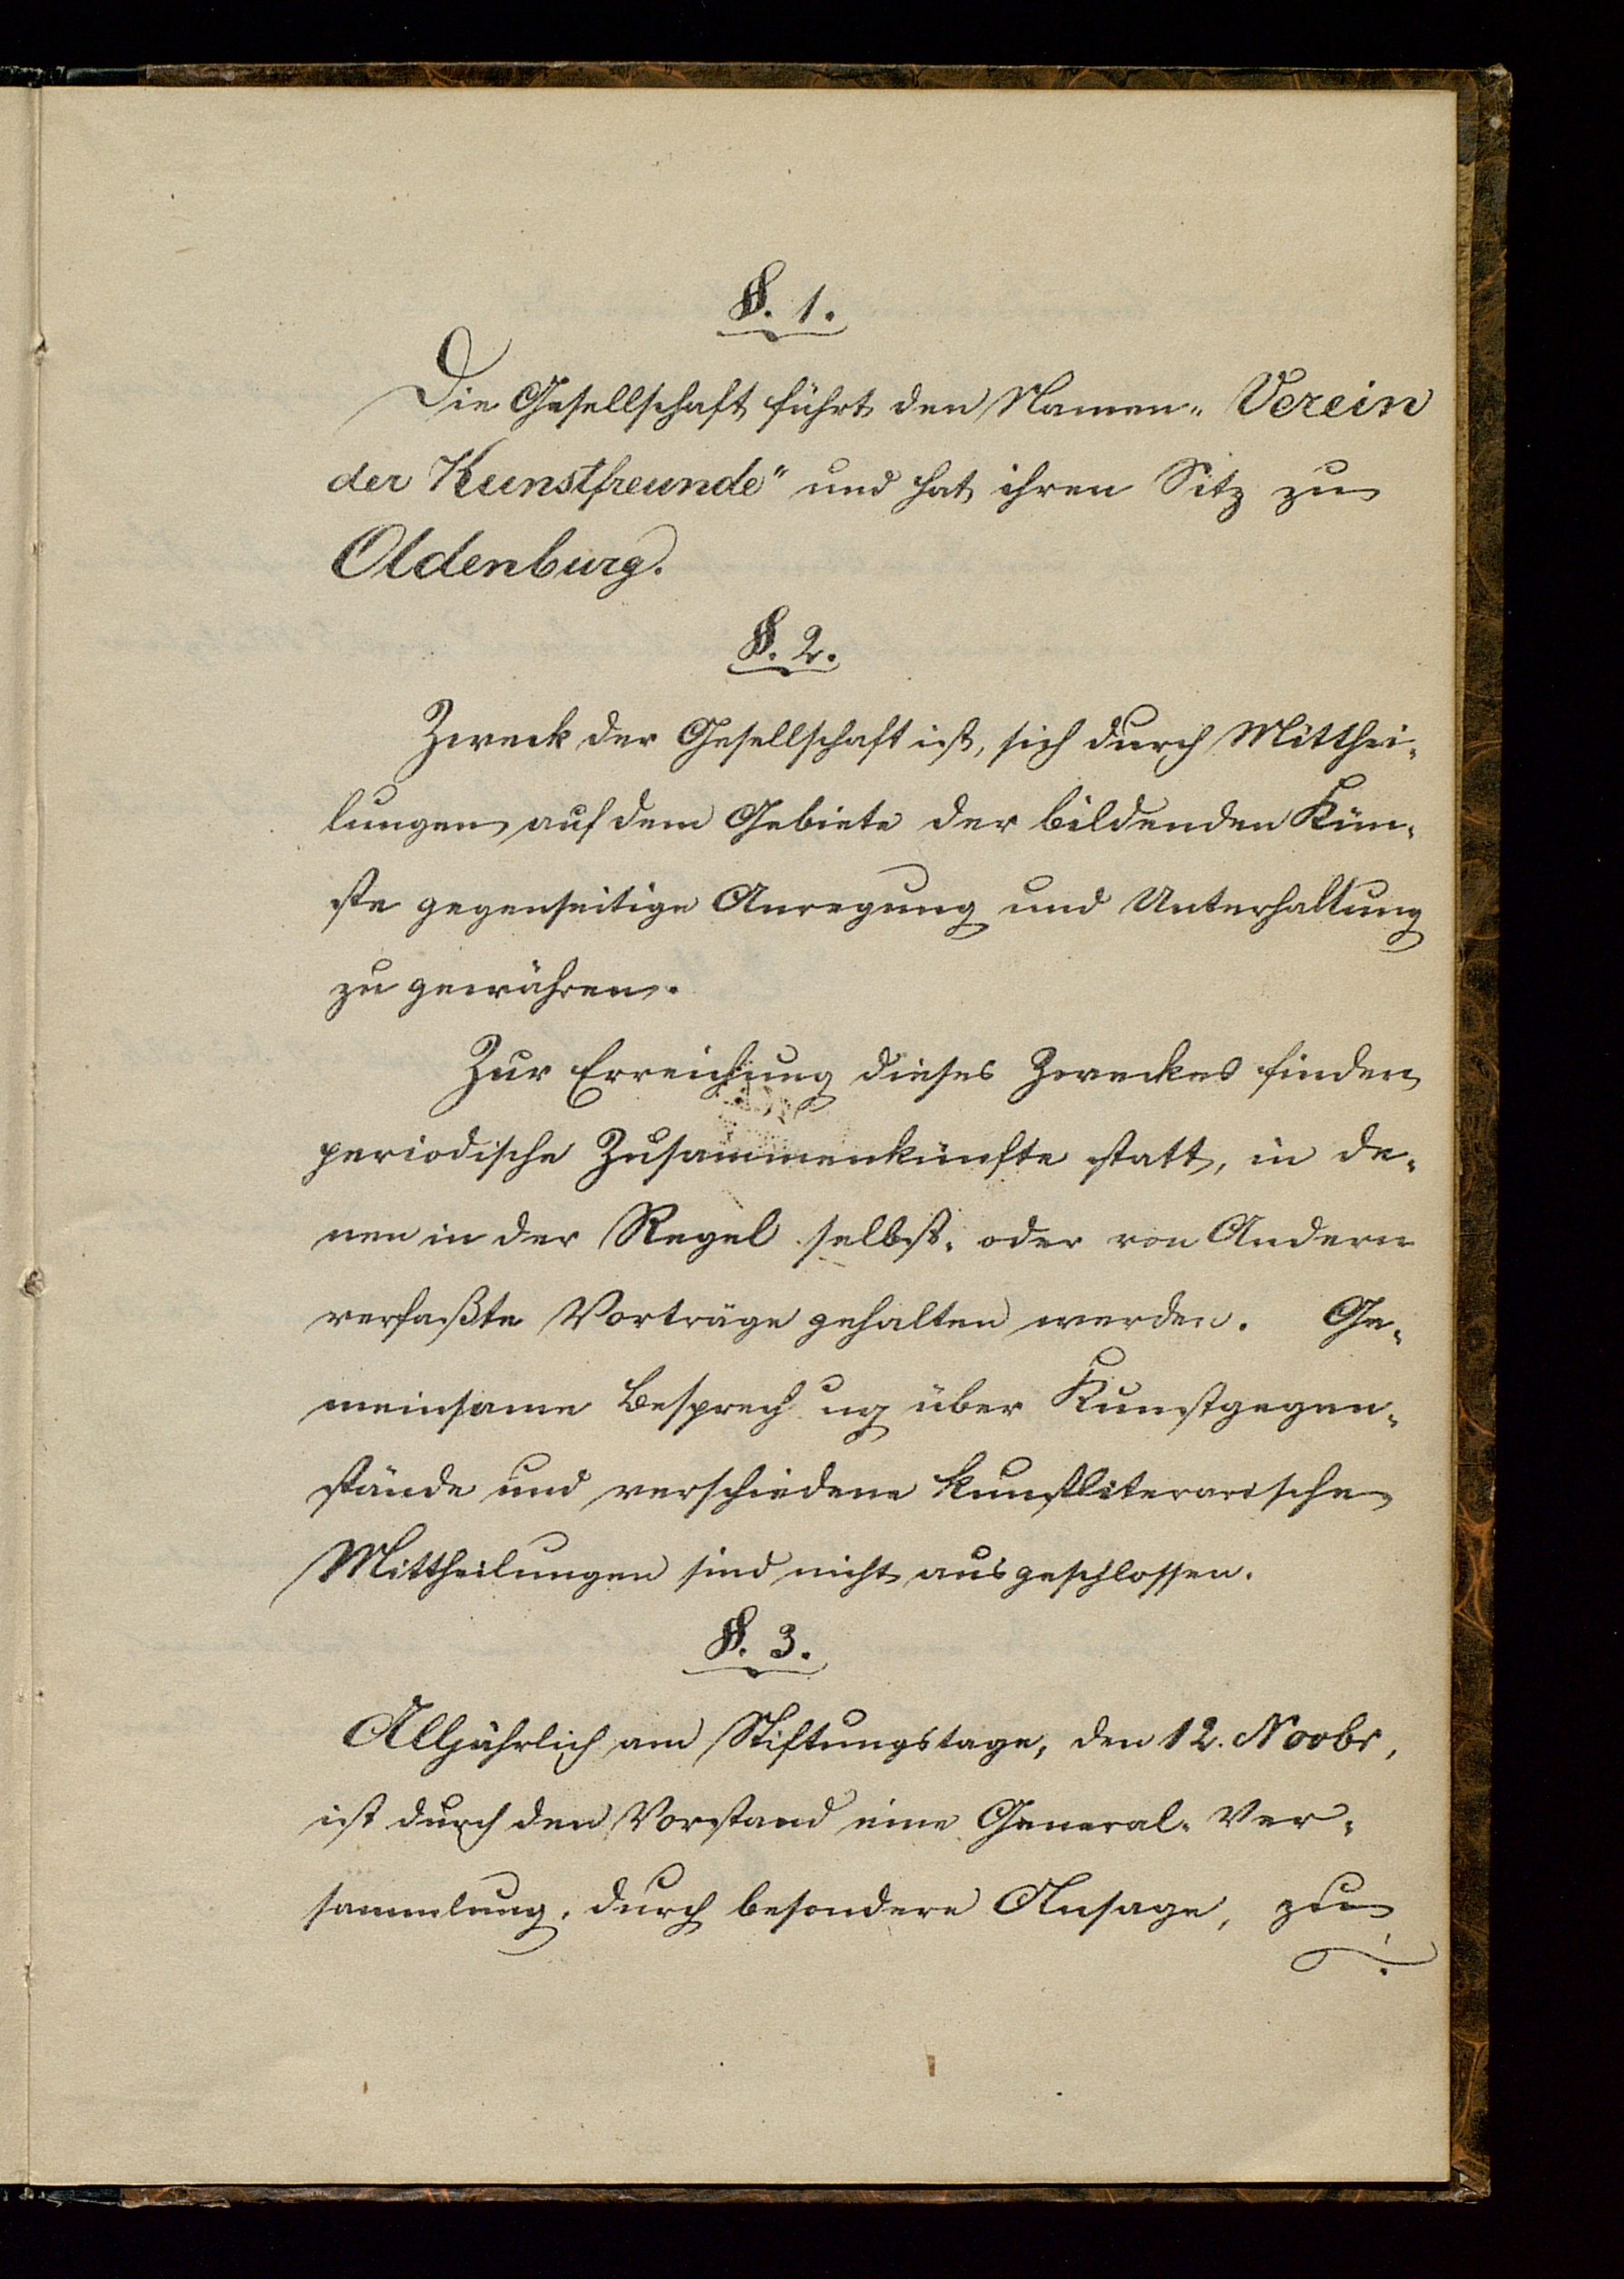 §. 1.
Die Gesellschaft führt den Namen „Verein
der Kunstfreunde" und hat ihren Sitz zu
Oldenburg.
§. 2.
Zweck der Gesellschaft ist, sich durch Mitthei-
lungen auf dem Gebiete der bildenden Kün-
ste gegenseitige Anregung und Unterhaltung
zu gewähren.
Zur Erreichung dieses Zweckes finden
periodische Zusammenkünfte statt, in de-
nen in der Regel selbst- oder von Andern
verfaßte Vorträge gehalten werden. Ge-
meinsame Besprech ug über Kunstgegen-
stände und verschiedene kunstliterarische
Mittheilungen sind nicht ausgeschlossen.
§. 3.
Alljährlich am Stiftungstage, den 12. Novbr,
ist durch den Vorstand eine General-Ver-
sammlung, durch besondere Ansage, zu